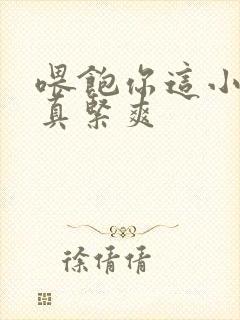 喂飽你這小
真緊爽
徐倩倩